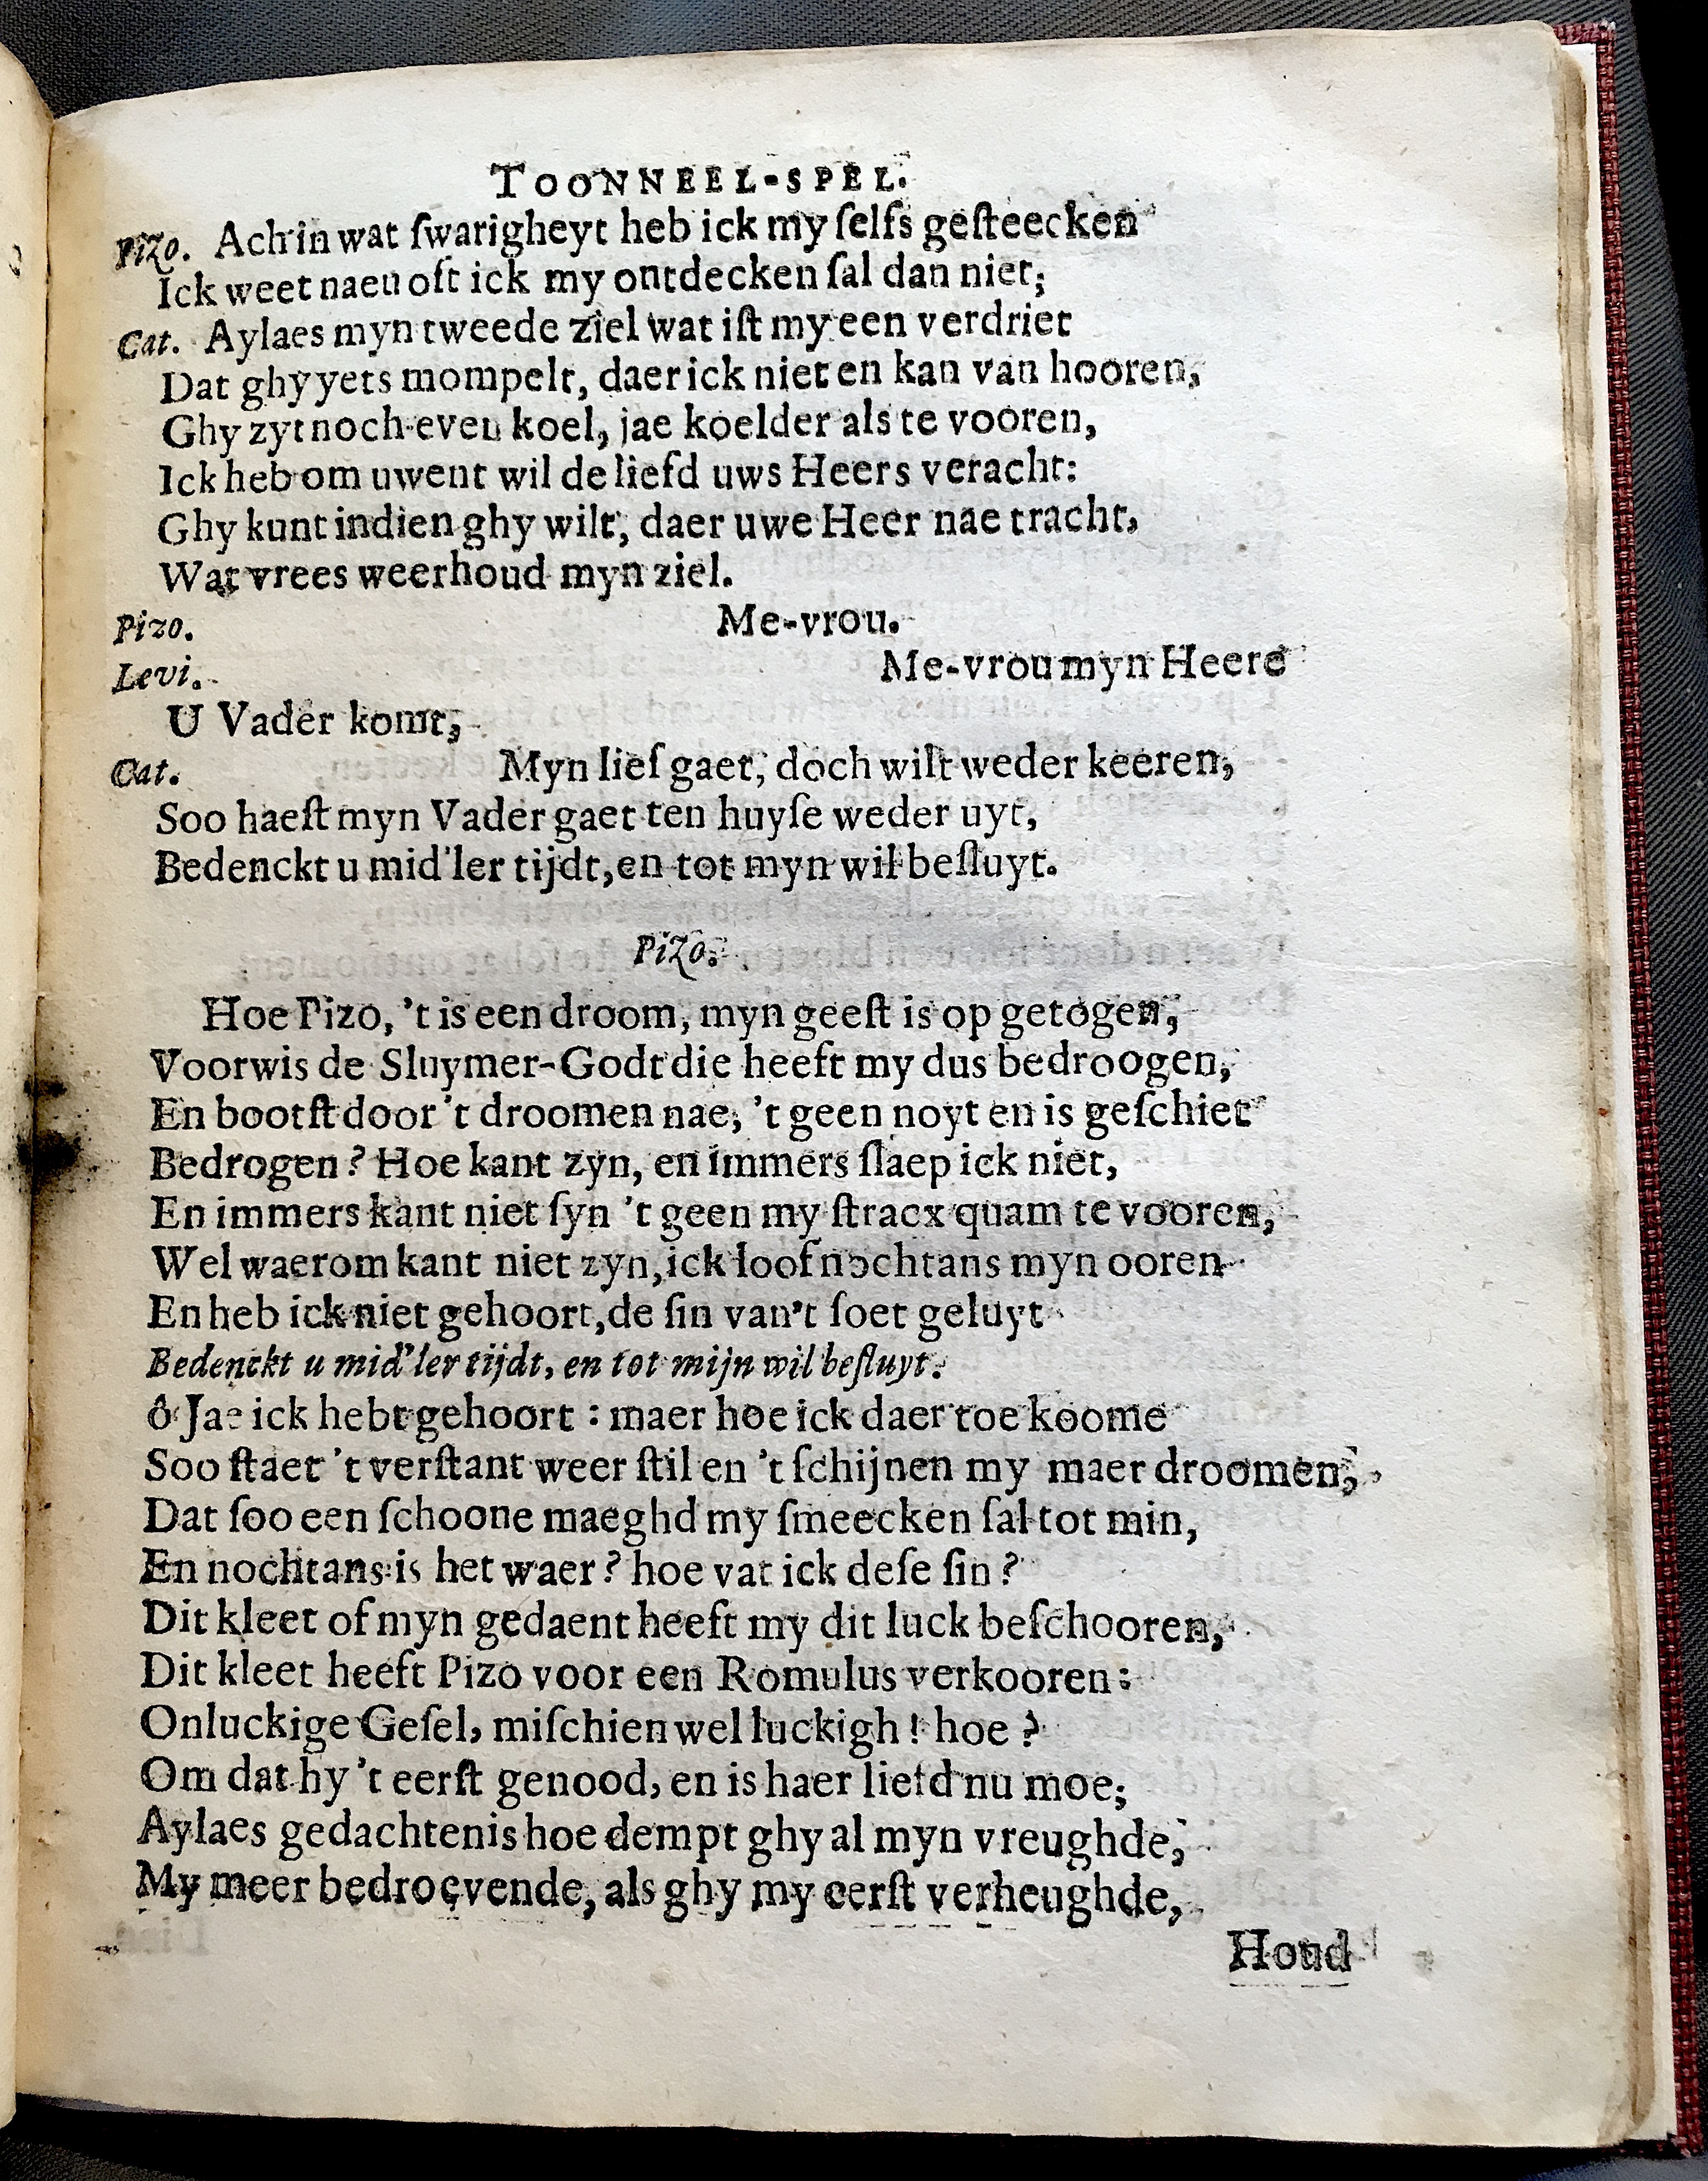 TOONNEEL-SPEL.
Pizo. Ach in wat ſwarigheyt heb ick my ſelfs geſteecken
Ick weet naeu oft ick my ontdecken ſal dan niet;
Cat. Aylaes myn tweede ziel wat iſt my een verdriet
Dat ghy yets mompelt, daer ick niet en kan van hooren,
Ghy zyt noch even koel, jae koelder als te vooren,
Ick heb om uwent wil de liefd uws Heers veracht:
Ghy kunt indien ghy wilt, daer uwe Heer nae tracht,
Wat vrees weerhoud myn ziel.
Pizo. Me-vrou.
Levi. Me-vrou myn Heere
U Vader komt,
Cat. Myn lief gaet, doch wilt weder keeren,
Soo haeſt myn Vader gaet ten huyſe weder uyt,
Bedenckt u mid'ler tijdt, en tot myn wil beſluyt.
Pizo.
Hoe Pizo, 't is een droom, myn geeſt is op getogen,
Voorwis de Sluymer-Godt die heeft my dus bedroogen,
En bootſt door 't droomen nae, 't geen noyt en is geſchiet
Bedrogen? Hoe kant zyn, en immers ſlaep ick niet,
En immers kant niet ſyn 't geen my ſtracx quam te vooren,
Wel waerom kant niet zyn, ick loof nochtans myn ooren
En heb ick niet gehoort, de ſin van't ſoet geluyt
Bedenckt u mid'ler tijdt, en tot mijn wil beſluyt.
ô Jae ick hebt gehoort: maer hoe ick daer toe koome
Soo ſtaet 't verſtant weer ſtil en 't ſchijnen my maer droomen,
Dat ſoo een ſchoone maeghd my ſmeecken ſal tot min,
En nochtans is het waer? hoe vat ick deſe ſin?
Dit kleet of myn gedaent heeft my dit luck beſchooren,
Dit kleet heeft Pizo voor een Romulus verkooren:
Onluckige Geſel, miſchien wel luckigh! hoe?
Om dat hy 't eerſt genood, en is haer liefd nu moe;
Aylaes gedachtenis hoe dempt ghy al myn vreughde,
My meer bedroevende, als ghy my eerſt verheughde,
Houd